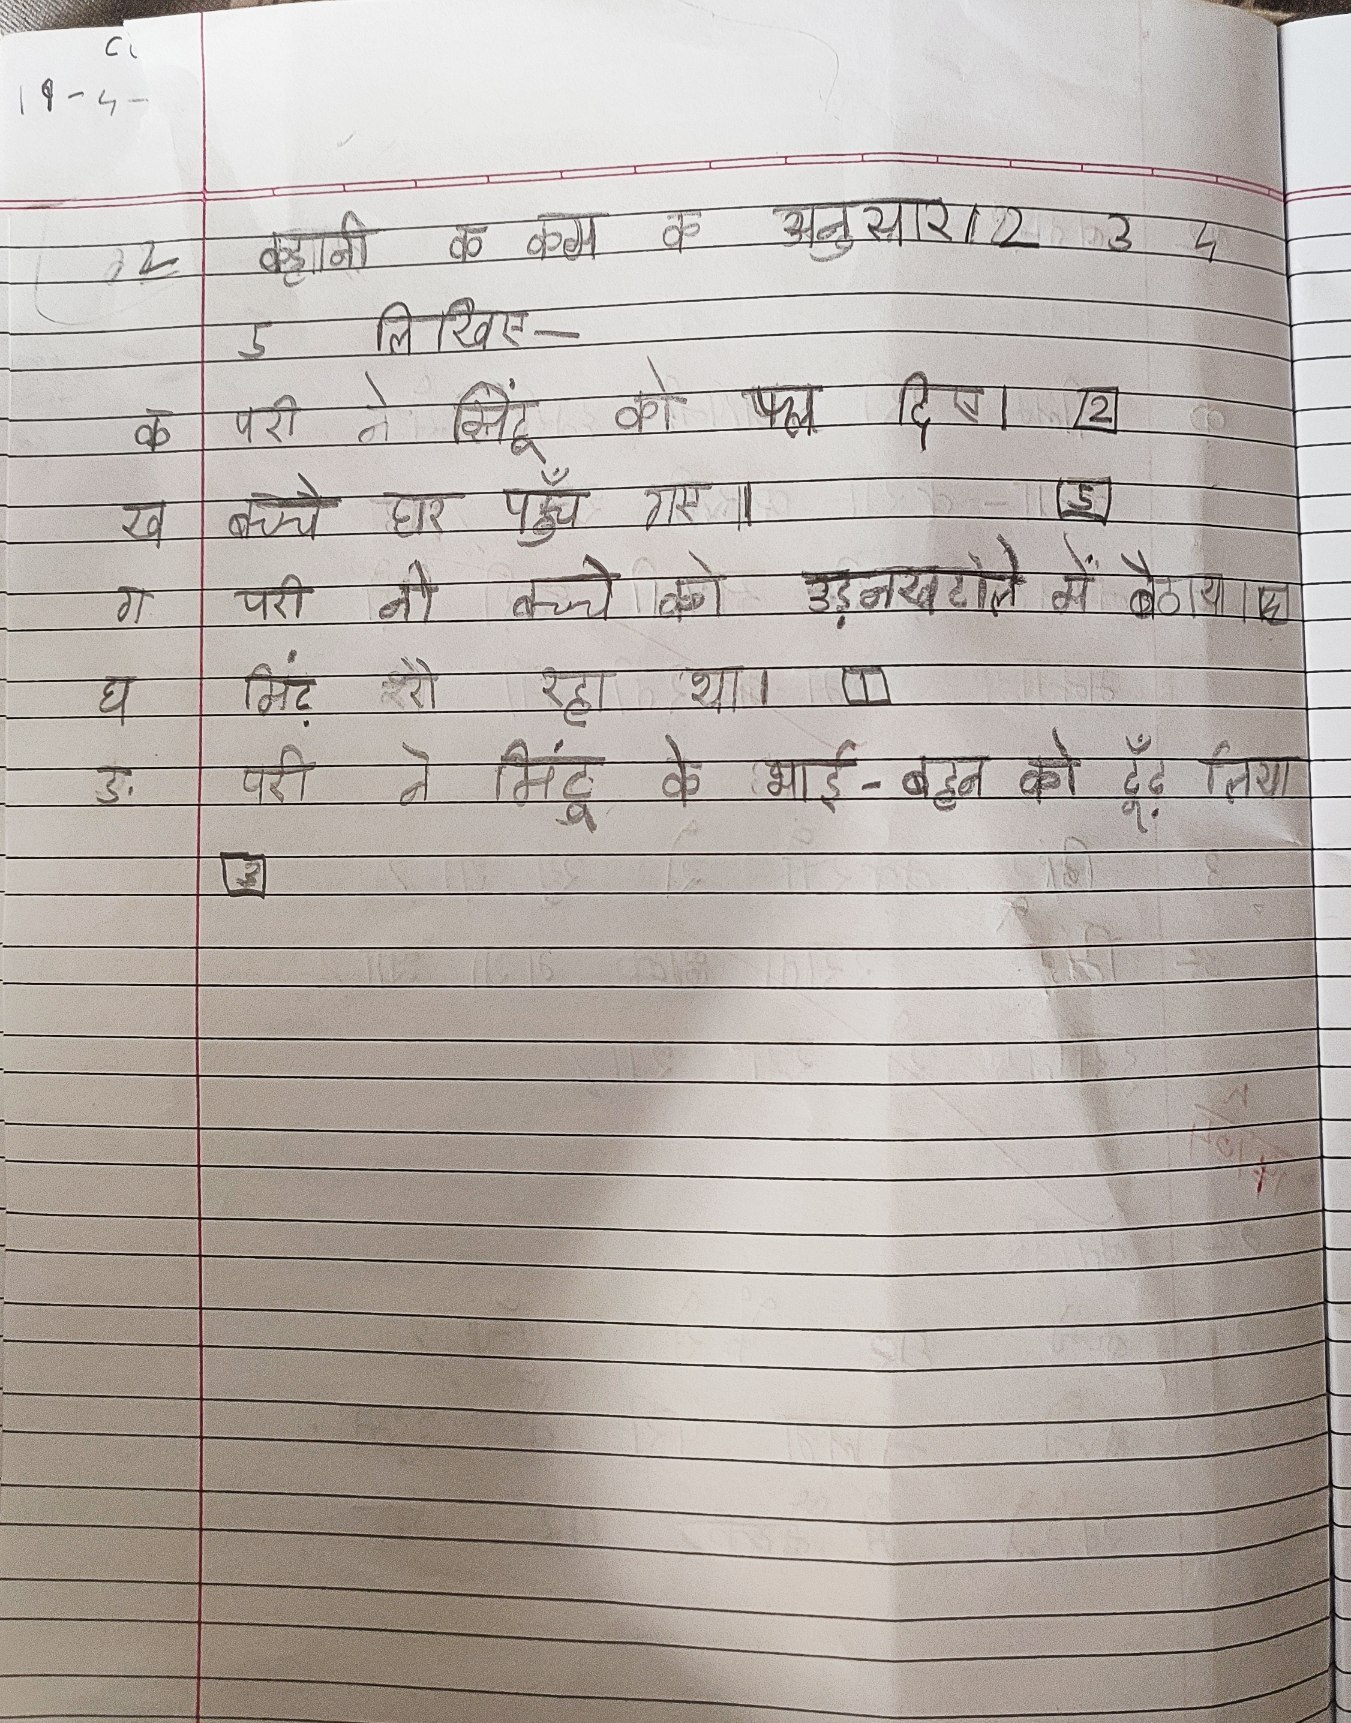 19-4-
2 कहानी क कम क अनुसार 1 2 3 4
5 लिखिए—
क परी ने मिंटू को फल दिए। 2
ख बच्चे घर पहुँच गए। 5
ग परी नौ बच्चे को उड़नखटोले में बैठाया। 4
घ मिंटू रो रहा था। 1
ङ. परी ने मिंटू के भाई-बहन को ढूँढ़ लिया
3